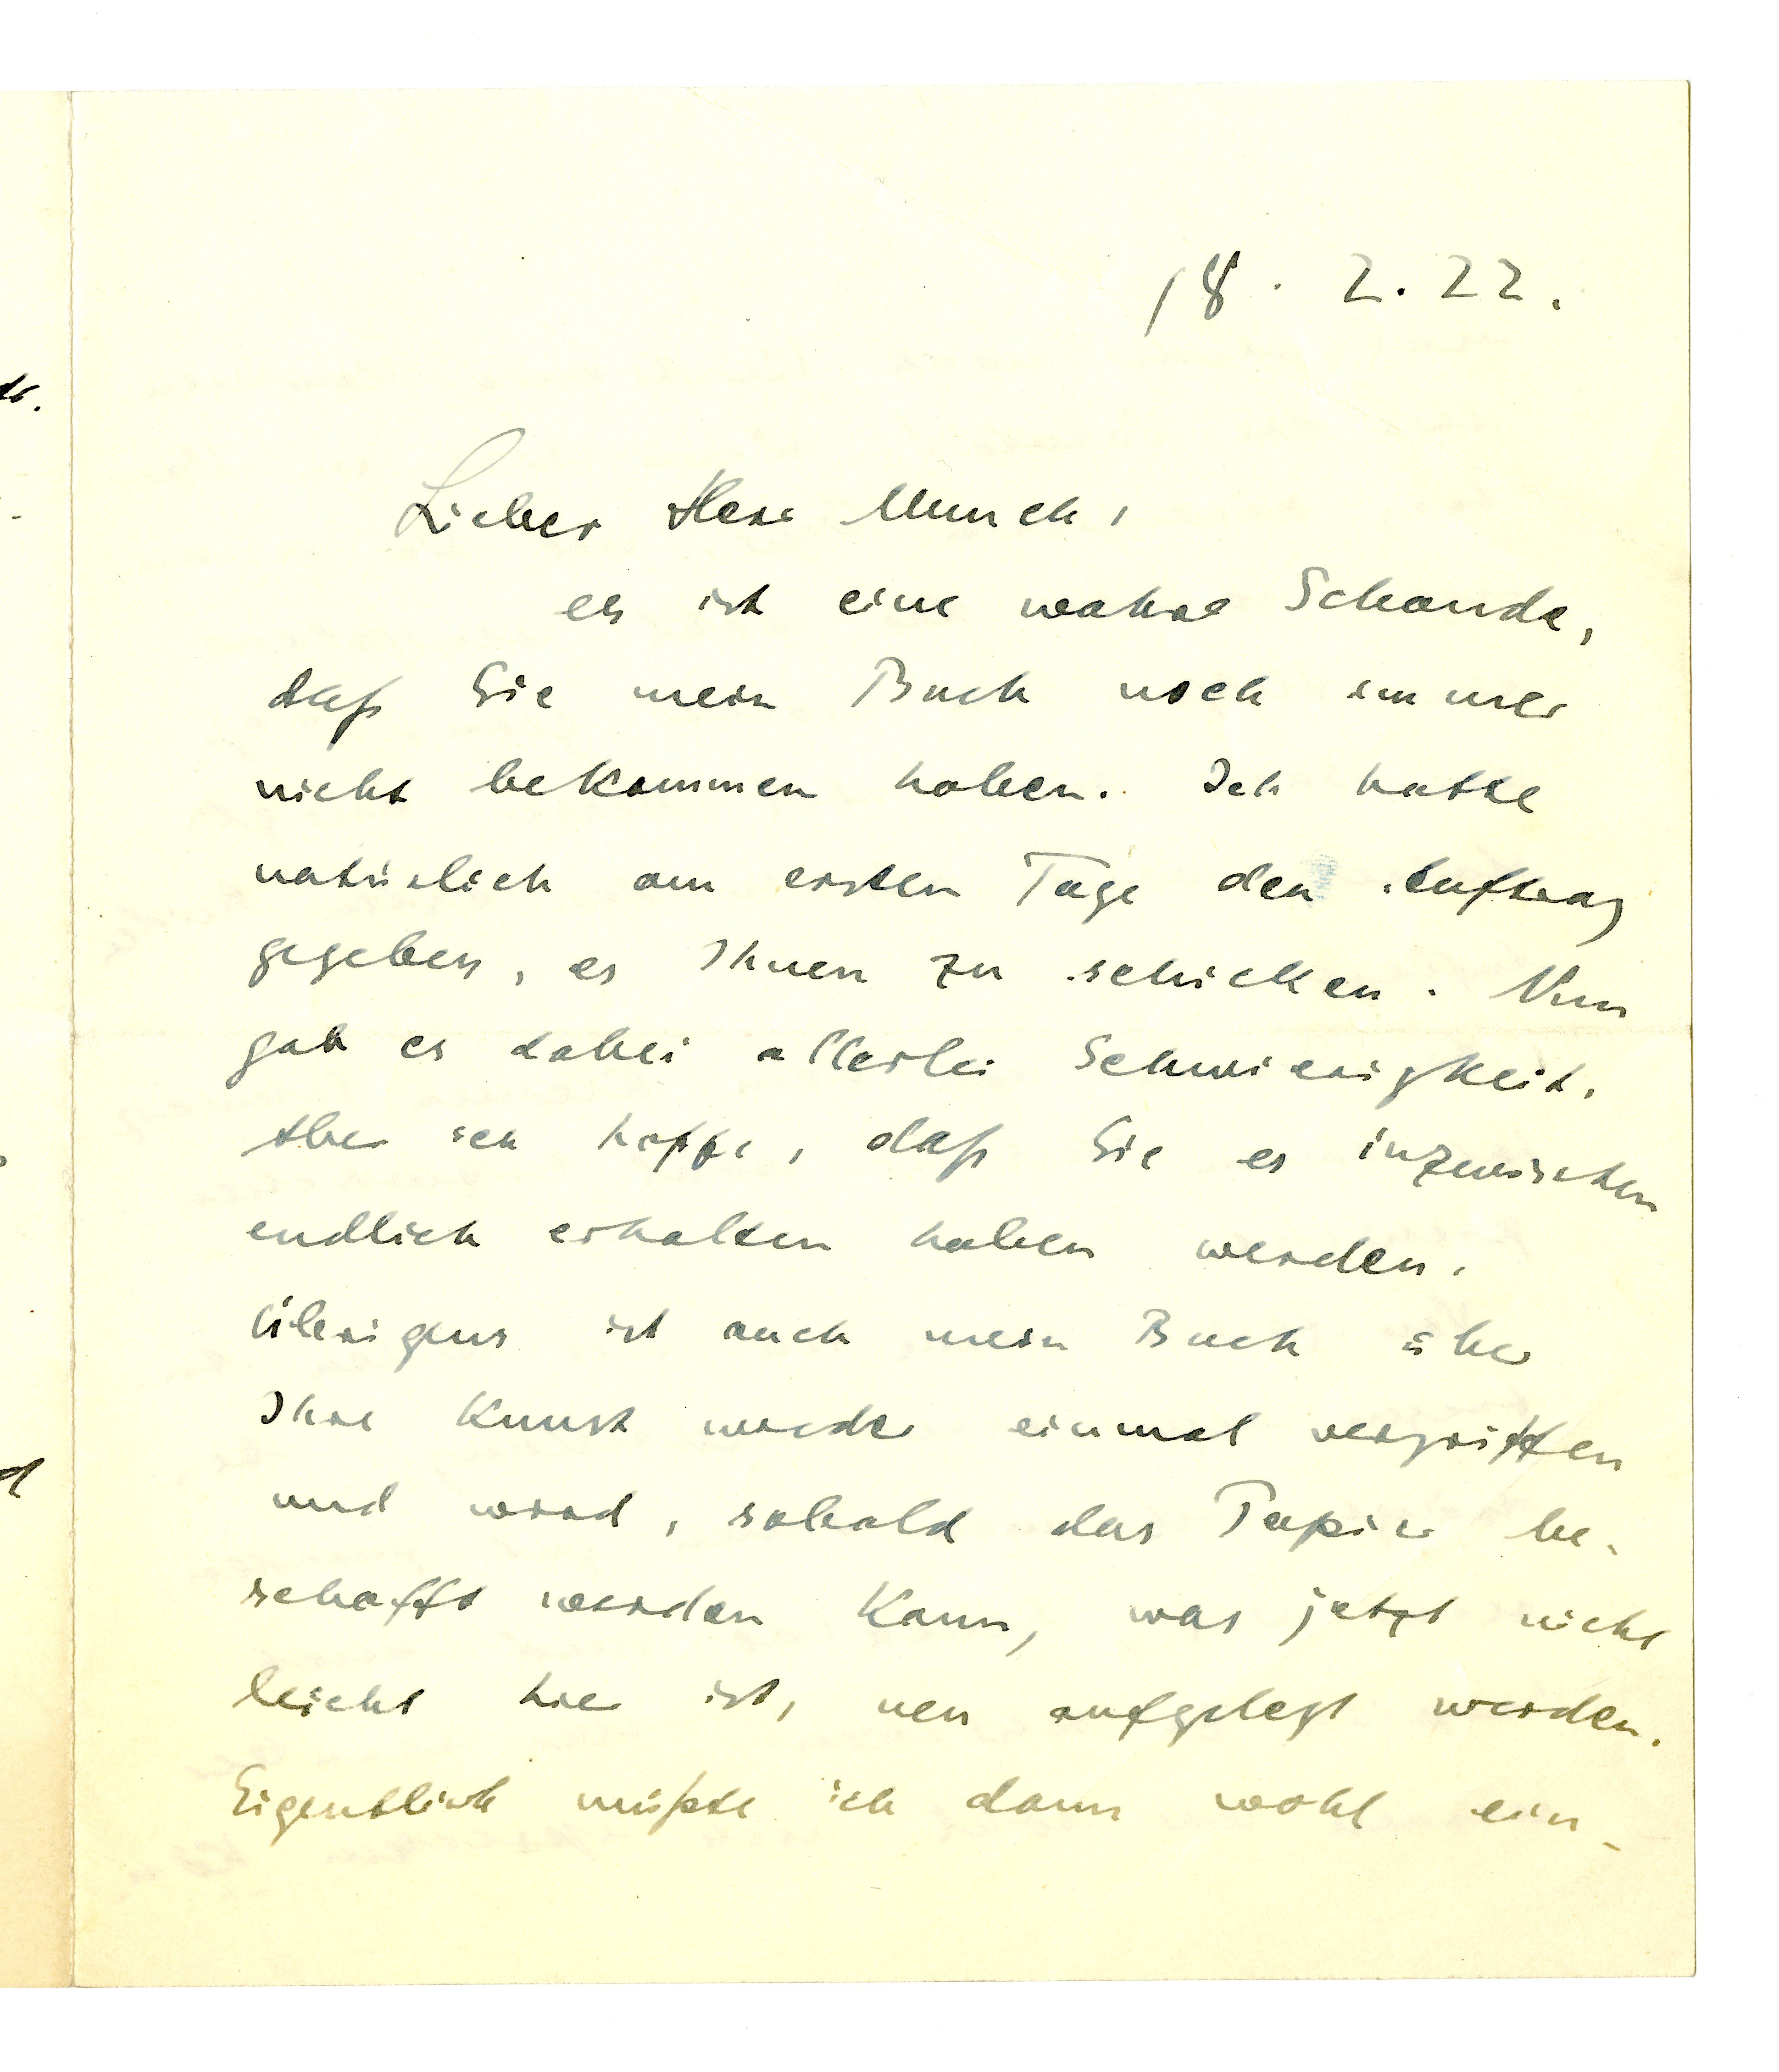 18. 2. 22.
Lieber Herr Munch,
es ist eine wahre Schande,
daß Sie mein Buch noch immer
nicht bekommen haben. Ich hatte
natürlich am ersten Tage den Auftrag
gegeben, es Ihnen zu schicken. Nun
gab es dabei allerlei Schwierigkeit.
Aber ich hoffe, daß Sie es inzwischen
endlich erhalten haben werden.
Übrigens ist auch mein Buch über
Ihre Kunst wieder einmal vergriffen
und wird, sobald das Papier be-
schafft werden kann, was jetzt nicht
leicht hier ist, neu aufgelegt werden.
Eigentlich müßte ich dann wohl ein-